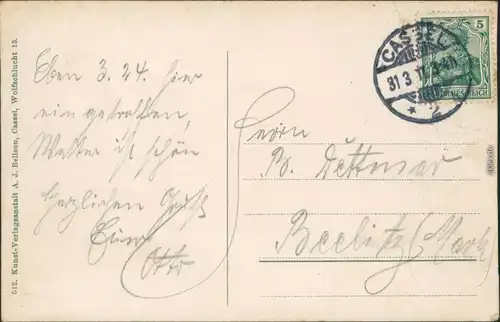 512. Kunst-Verlagsanstalt A. J. Belloon, Cassel, Wolfschlucht 13.
Eben 3.24. hier
eingetroffen,
Wetter ist schön
Herzlichen Gruß
Euer
Otto
CASSEL
31.3
* 2
5
DEUTSCHES REICH
Herrn
Br. Dettmar
Beelitz (Mark)